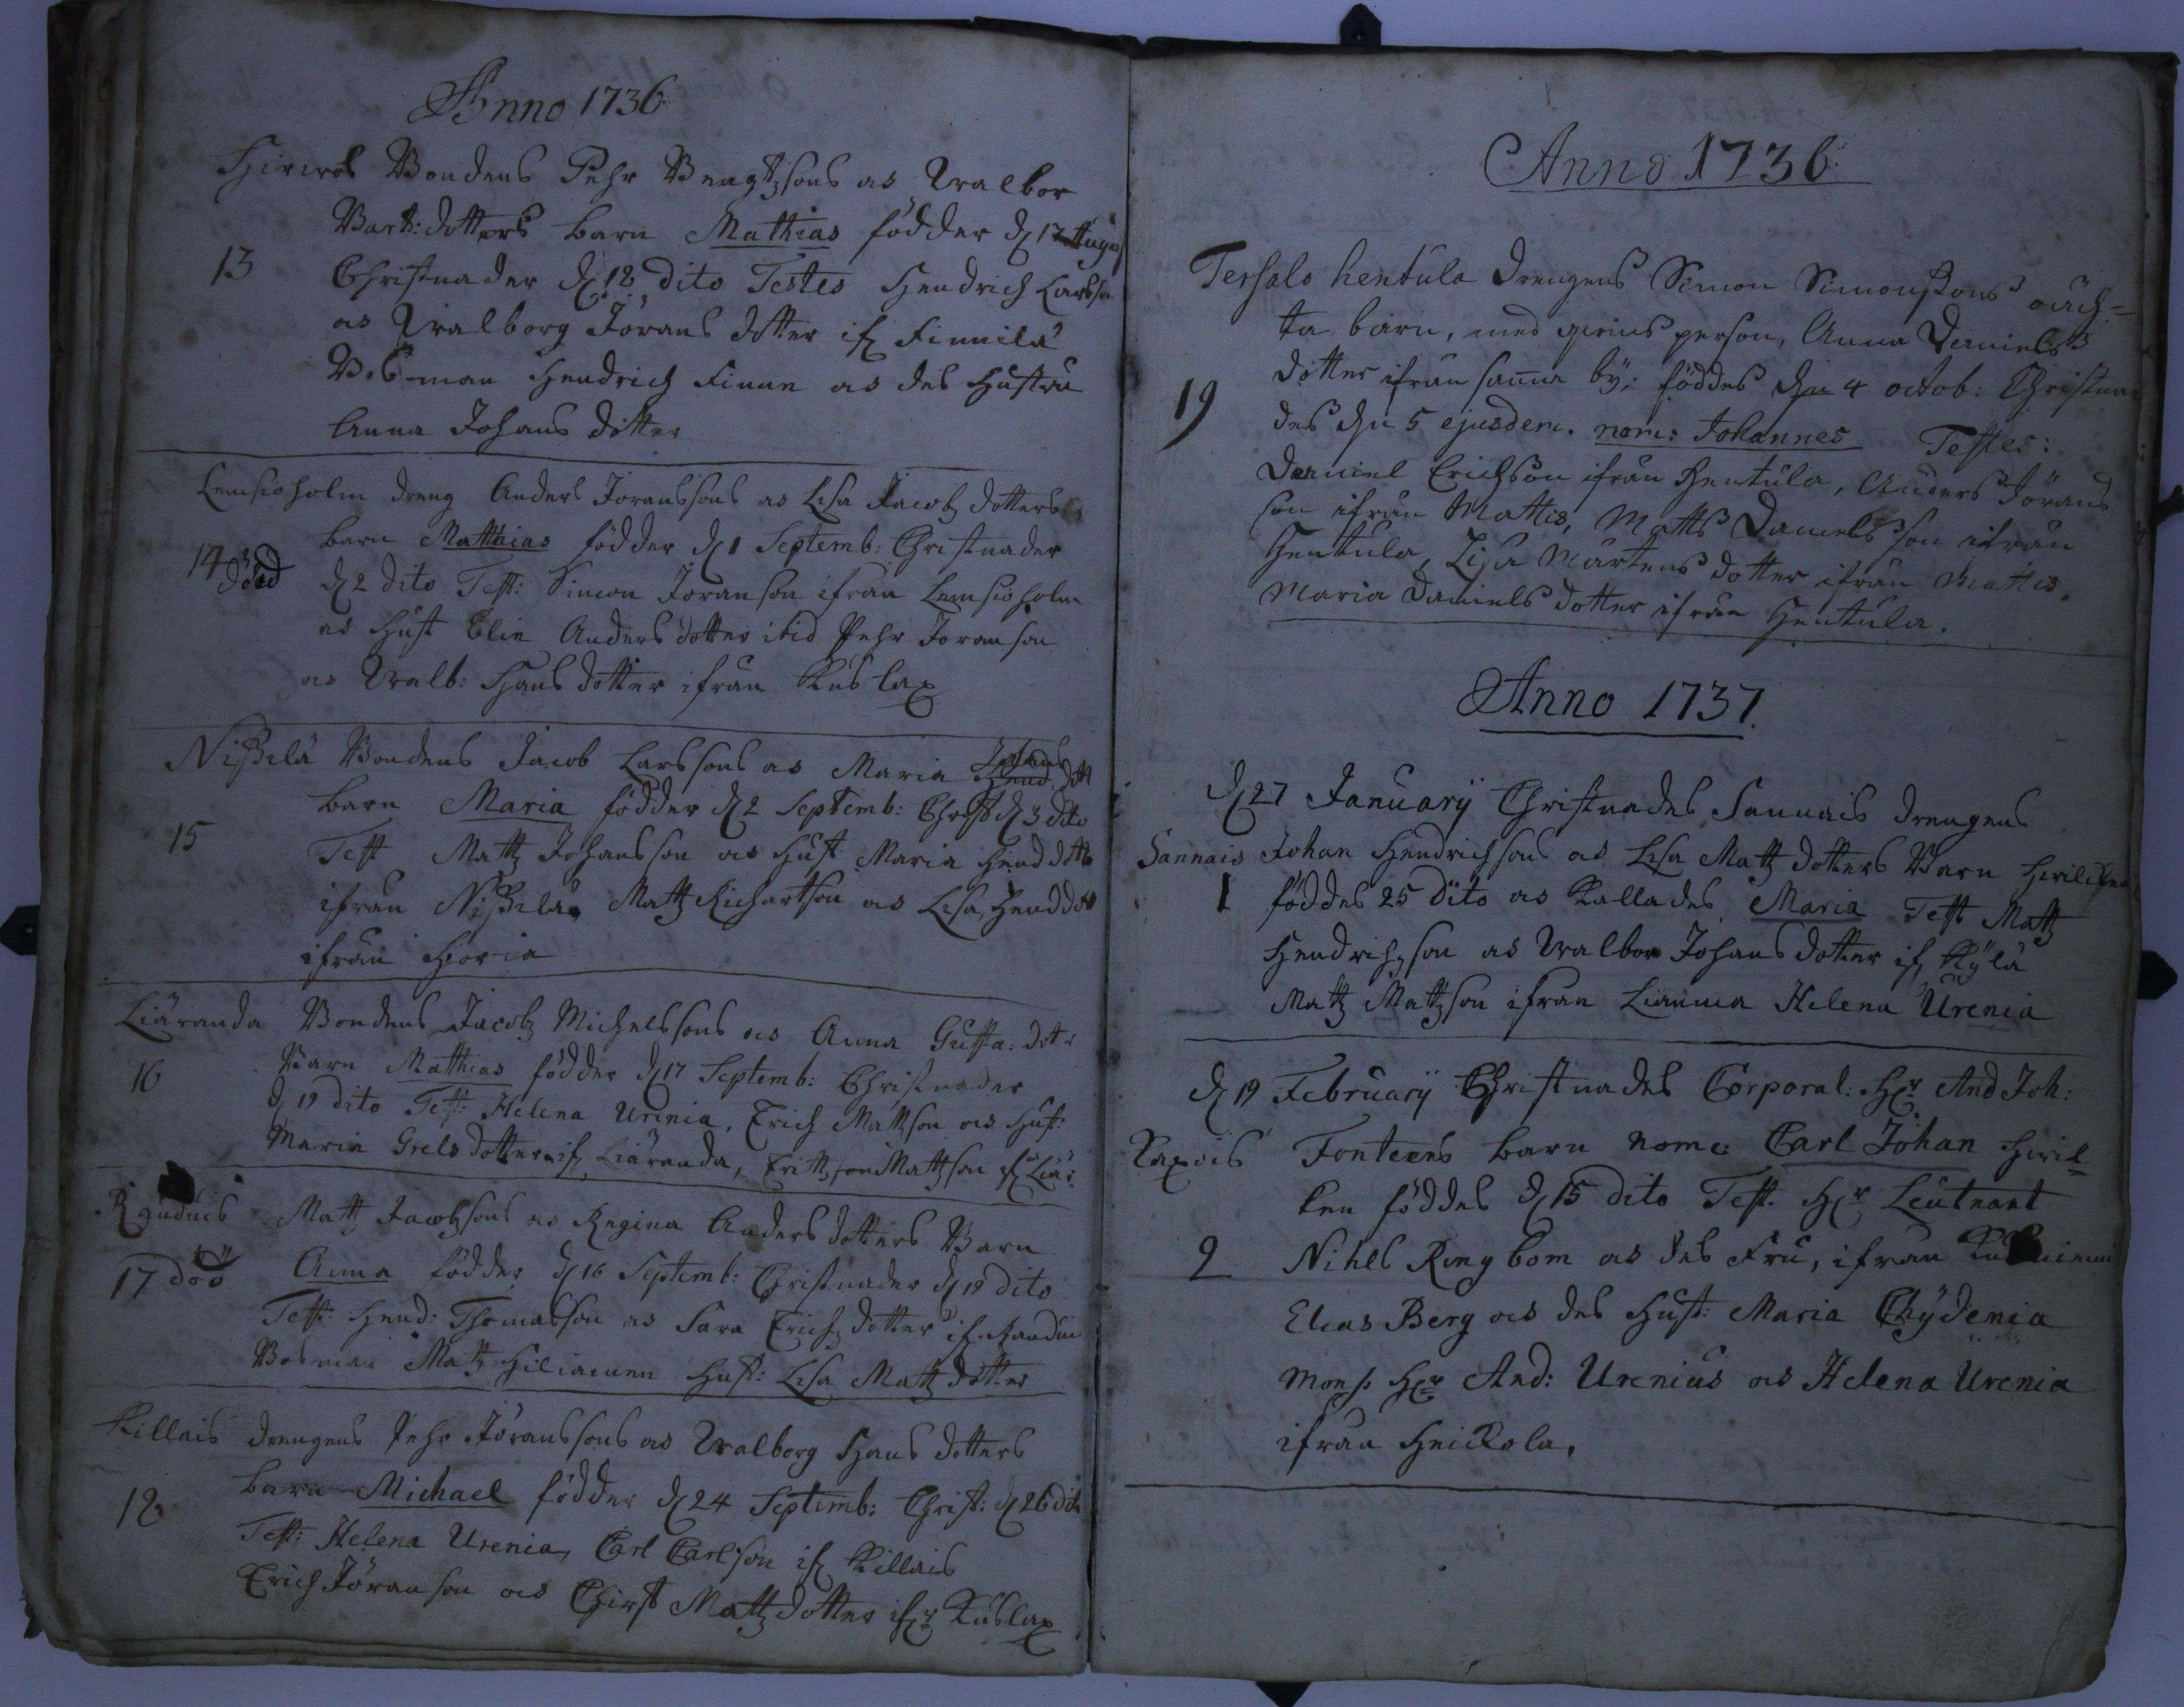 Anno 1736
Bondens Pehr Bengtzsons os Walbor
Bart: dotters barn Mathias födder d 17 Augus
13 Christnader d 18 dito Testes Hendrich Larsson
os Walborg Jörans dotter if Finnilä
Bos-man Hendrich Finne os des Hustru
Anna Johans dotter
Lemsioholm dreng Anders Joranssons os Lisa Jacobz dotters
barn Matthias födder d 1 Septemb: Christnader
14 död d 2 dito Test: Simon Joranson ifrån Lemsioholm
os Hust Elin Anders dotter ibid Pehr Joranson
os Walb: Hans dotter ifrån Kuslax
Nissilä Bondens Jacob Larssons os Maria Johans dott
barn Maria födder d 2 Septemb: Christ d 3 dito
15 Test Mattz Johansson os Hust Maria Hend dotter
ifrån Nissilä, Mattz Richartson os Lisa Hend dot
ifrån
Liäranda Bondens Jacobz Michelssons os Anna Gusta: dotr
16 Barn Matthias födder d 17 Septemb: Christnader
d 19 dito Test: Helena Urenia, Erich Mattson os Hust:
Maria Grels dotter if Liäranda, Mattson if Liä:
Mattz Jacobzsons os Regina Anders dotters Barn
17 död Anna födder d 16 Septemb: Christnader d 19 dito
Test: Hend: Thomasson os Sara Erichz dotter if
Bosman Mattz Hust: Lisa Mattz dotter
Killais drengens Pehr Jöranssons os Walborg Hans dotters
18 barn Michael födder d 24 Septemb: Christ: d 26 dito
Test: Helena Urenia, Carl Carlson if Killais
Erich Jöranson os Christ Mattz dotter ifr Kuslax
Anno 1736
Tersalo hentula drengens Simon Simonssons oäch-
ta barn, med person, Anna Daniels
19 dotter ifrån samma by: föddes den 4 octob: Christna-
des den 5 ejusdem. nom: Johannes Testes:
Daniel Erichson ifrån Hentula, Anders Jörans
son ifrån Mattis, Matts Danielsson ifrån
Hentula, Lisa Mårtens dotter ifrån Mattis.
Maria Daniels dotter ifrån Hentula.
Anno 1737.
d 27 January Christnades Sannais drengens
Sannais Johan Hendrichsons os Lisa Mattz dotters Barn
1 föddes 25 dito os Kallades Maria Test Mattz
Hendrichson os Walbor Johans dotter if Kylä
Mattz Mattzson ifrån Lianma Helena Urenia
d 19 February Christnades Corporal: Hr And Joh:
Fonteens barn nom: Carl Johan hwil-
ken föddes d 15 dito Test. Hr Leutnant
2 Nihls Ringbom os des Fru, ifrån
Elias Berg os des Hust: Maria Chydenia
Mons: Hr And: Urenius os Helena Urenia
ifrån Heickola,